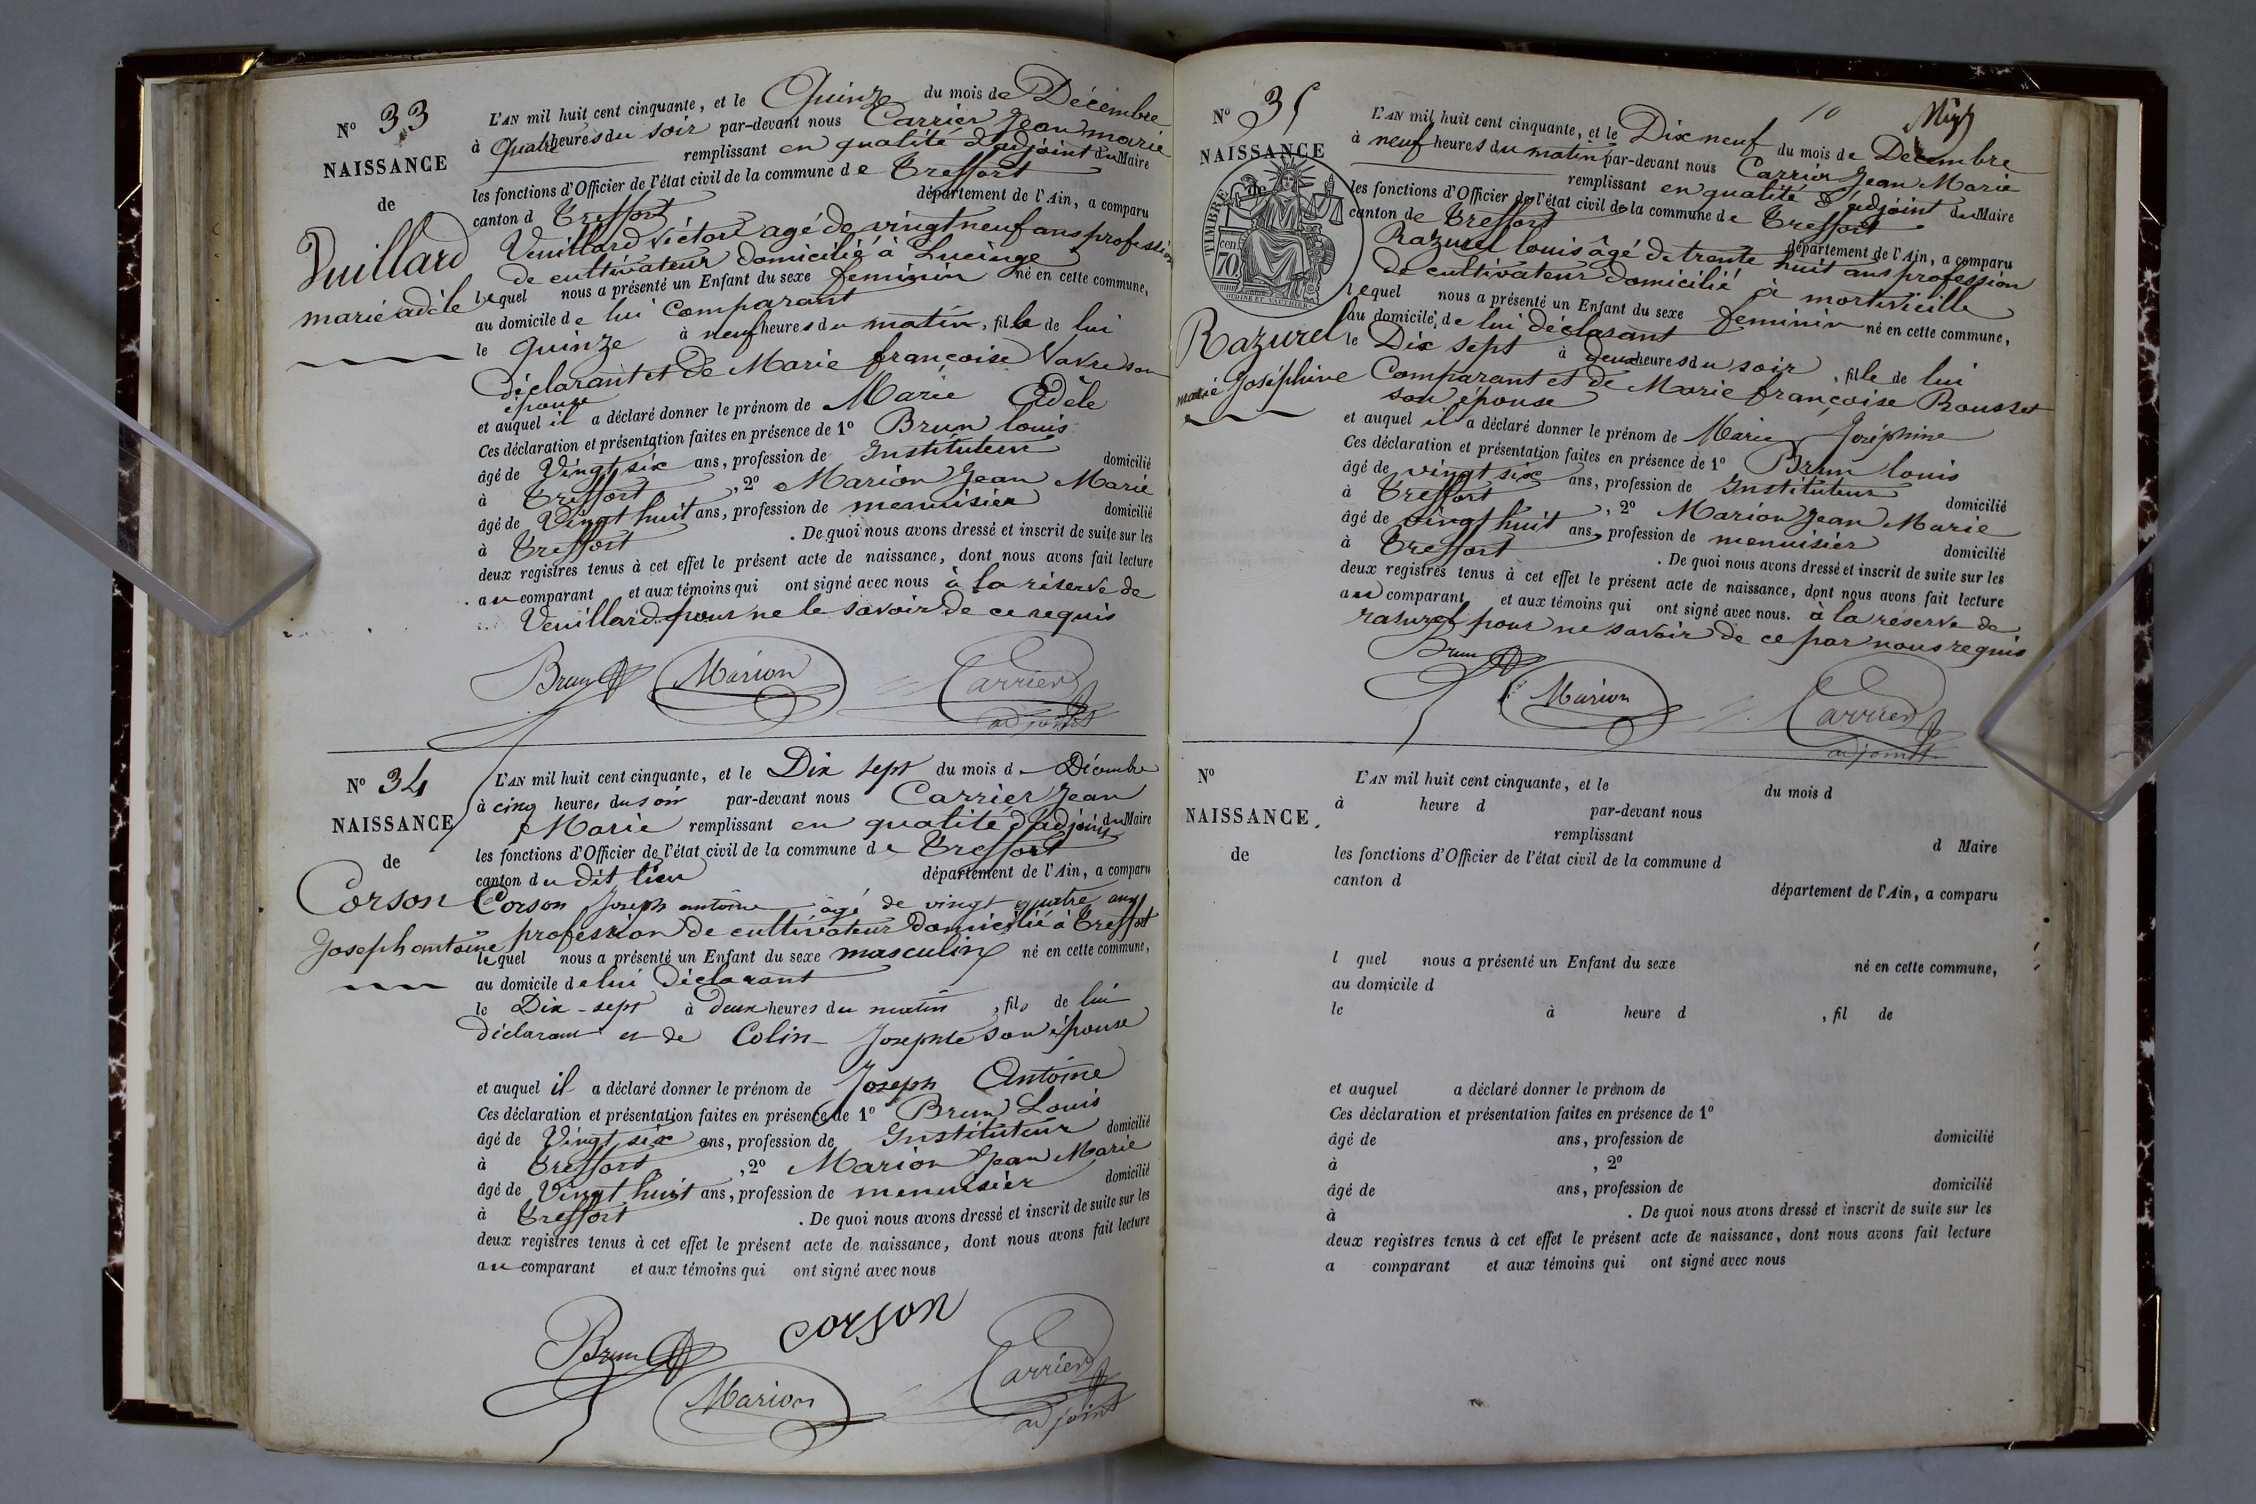 N° 33
NAISSANCE
de
Vuillard
marie adèle
L'AN mil huit cent cinquante, et le Quinze du mois de Décembre
à quatre heures du soir par-devant nous Carrier Jean marie
remplissant en qualité d'adjoint du Maire
les fonctions d'Officier de l'état civil de la commune de Treffort
canton d Treffort département de l'Ain, a comparu
Veuillard victore agé de vingt neuf ans profession
de cultivateur domicilié à Lucinge
lequel nous a présenté un Enfant du sexe feminin né en cette commune,
au domicile de lui Comparant
le quinze à neuf heures du matin, fille de lui
déclarant et de Marie françoise Vavre son
épouse
et auquel il a déclaré donner le prénom de Marie Adèle
Ces déclaration et présentation faites en présence de 1° Brun louis
âgé de Vingt six ans, profession de Instituteur domicilié
à Treffort, 2° Marion Jean Marie
âgé de Vingt huit ans, profession de menuisier domicilié
à Treffort. De quoi nous avons dressé et inscrit de suite sur les
deux registres tenus à cet effet le présent acte de naissance, dont nous avons fait lecture
au comparant et aux témoins qui ont signé avec nous à la réserve de
Veuillard pour ne le savoir de ce requis
Brun Marion Carrier
adjoint
N° 34
NAISSANCE
de
Corson
Joseph antoine
L'AN mil huit cent cinquante, et le Dix sept du mois de Décembre
à cinq heures du soir par-devant nous Carrier Jean
Marie remplissant en qualité d'adjoint du Maire
les fonctions d'Officier de l'état civil de la commune de Treffort
canton du dit lieu département de l'Ain, a comparu
Corson Joseph antoine âgé de vingt quatre ans
profession de cultivateur domicilié à Treffort
lequel nous a présenté un Enfant du sexe masculin né en cette commune,
au domicile de lui déclarant
le Dix-sept à deux heures du matin, fils de lui
déclarant et de Colin Josephte son épouse
et auquel il a déclaré donner le prénom de Joseph Antoine
Ces déclaration et présentation faites en présence de 1° Brun Louis
âgé de Vingt six ans, profession de Instituteur domicilié
à Treffort, 2° Marion Jean Marie
âgé de Vingt huit ans, profession de menuisier domicilié
à Treffort. De quoi nous avons dressé et inscrit de suite sur les
deux registres tenus à cet effet le présent acte de naissance, dont nous avons fait lecture
au comparant et aux témoins qui ont signé avec nous
Brun corson
Marion Carrier
adjoint
10
N° 35
NAISSANCE
de
TIMBRE
cen
70
Razurel
marie Joséphine
L'AN mil huit cent cinquante, et le Dix neuf du mois de Decembre
à neuf heures du matin par-devant nous Carrier Jean Marie
remplissant en qualité d'adjoint du Maire
les fonctions d'Officier de l'état civil de la commune de Treffort
canton de Treffort département de l'Ain, a comparu
Razurel louis âgé de trente huit ans profession
de cultivateur domicilié à montvieille
lequel nous a présenté un Enfant du sexe feminin né en cette commune,
au domicile de lui déclarant
le Dix sept à deux heures du soir, fille de lui
Comparant et de Marie françoise Rousset
son épouse
et auquel il a déclaré donner le prénom de Marie Joséphine
Ces déclaration et présentation faites en présence de 1° Brun louis
âgé de vingt six ans, profession de Instituteur domicilié
à Treffort, 2° Marion Jean Marie
âgé de vingt huit ans, profession de menuisier domicilié
à Treffort. De quoi nous avons dressé et inscrit de suite sur les
deux registres tenus à cet effet le présent acte de naissance, dont nous avons fait lecture
au comparant et aux témoins qui ont signé avec nous. à la réserve de
rasurel pour ne savoir de ce par nous requis
Brun Marion Carrier
adjoint
N°
NAISSANCE
de
L'AN mil huit cent cinquante, et le du mois d
à heure d par-devant nous
remplissant d Maire
les fonctions d'Officier de l'état civil de la commune d
canton d département de l'Ain, a comparu
l quel nous a présenté un Enfant du sexe né en cette commune,
au domicile d
le à heure d , fil de
et auquel a déclaré donner le prénom de
Ces déclaration et présentation faites en présence de 1°
âgé de ans, profession de domicilié
à , 2°
âgé de ans, profession de domicilié
à . De quoi nous avons dressé et inscrit de suite sur les
deux registres tenus à cet effet le présent acte de naissance, dont nous avons fait lecture
a comparant et aux témoins qui ont signé avec nous